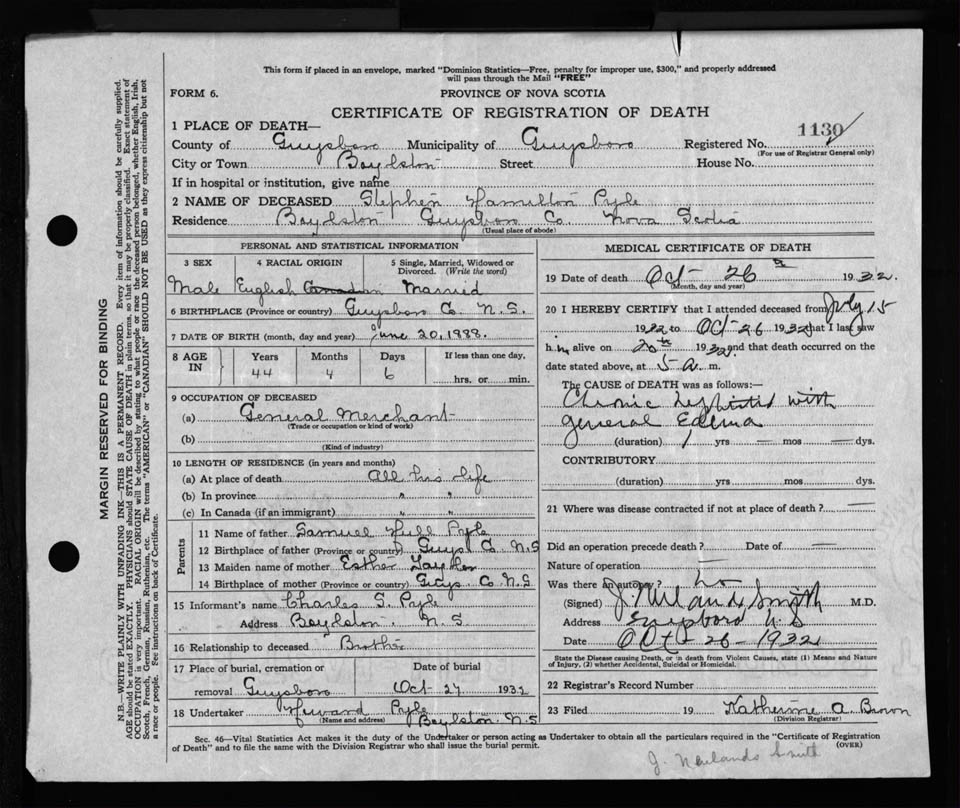 This form if placed in an envelope, marked "Dominion Statistics—Free, penalty for improper use, $300," and properly addressed
will pass through the Mail "FREE"
FORM 6. PROVINCE OF NOVA SCOTIA
CERTIFICATE OF REGISTRATION OF DEATH
1130
1 PLACE OF DEATH—
County of Guysboro Municipality of Guysboro Registered No.
(For use of Registrar General only)
City or Town Boylston Street House No.
If in hospital or institution, give name
2 NAME OF DECEASED Stephen Hamilton Pyle
Residence Boylston Guysboro Co Nova Scotia
(Usual place of abode)
PERSONAL AND STATISTICAL INFORMATION
3 SEX 4 RACIAL ORIGIN 5 Single, Married, Widowed or
Divorced. (Write the word)
Male English Canadian Married
6 BIRTHPLACE (Province or country) Guysboro Co. N.S.
7 DATE OF BIRTH (month, day and year) June 20, 1888.
8 AGE IN Years Months Days If less than one day.
44 4 6 hrs. or min.
9 OCCUPATION OF DECEASED
(a) General Merchant
(Trade or occupation or kind of work)
(b)
(Kind of industry)
10 LENGTH OF RESIDENCE (in years and months)
(a) At place of death All his life
(b) In province " "
(c) In Canada (if an immigrant) " "
Parents
11 Name of father Samuel Pyle
12 Birthplace of father (Province or country) Guys Co. N.S
13 Maiden name of mother Esther
14 Birthplace of mother (Province or country) Guys. Co N.S
15 Informant's name Charles S. Pyle
Address Boylston. N.S.
16 Relationship to deceased Brother
17 Place of burial, cremation or Date of burial
removal Guysboro Oct- 27 1932
18 Undertaker Pyle
(Name and address) Boylston. N.S
MEDICAL CERTIFICATE OF DEATH
19 Date of death Oct- 26th 1932.
(Month, day and year)
20 I HEREBY CERTIFY that I attended deceased from July 15
1932 to Oct- 26 1932 that I last saw
him alive on 20th 1932, and that death occurred on the
date stated above, at 5 a. m.
The CAUSE OF DEATH was as follows:—
Chronic Nephritis with
general Edema
(duration) 1 yrs — mos — dys.
CONTRIBUTORY
(duration) yrs. mos. dys.
21 Where was disease contracted if not at place of death? —
Did an operation precede death? — Date of —
Nature of operation —
Was there an autopsy? no
(Signed) J. Newlands Smith M.D.
Address Guysboro N.S
Date Oct- 26 - 1932
State the Disease causing Death, or in death from Violent Causes, state (1) Means and Nature
of Injury, (2) whether Accidental, Suicidal or Homicidal.
22 Registrar's Record Number
23 Filed 19 Katherine A. Brown
(Division Registrar)
Sec. 46—Vital Statistics Act makes it the duty of the Undertaker or person acting as Undertaker to obtain all the particulars required in the "Certificate of Registration
of Death" and to file the same with the Division Registrar who shall issue the burial permit. (OVER)
J. Newlands Smith
MARGIN RESERVED FOR BINDING
N.B.—WRITE PLAINLY WITH UNFADING INK—THIS IS A PERMANENT RECORD. Every item of information should be carefully supplied.
AGE should be stated EXACTLY. PHYSICIANS should STATE CAUSE OF DEATH in plain terms, so that it may be properly classified. Exact statement of
OCCUPATION is very important. RACIAL ORIGIN will be described by stating to what people or race the deceased person belonged, whether English, Irish,
Scotch, French, German, Russian, Ruthenian, etc. The terms "AMERICAN" or "CANADIAN" SHOULD NOT BE USED as they express citizenship but not
a race or people. See instructions on back of Certificate.